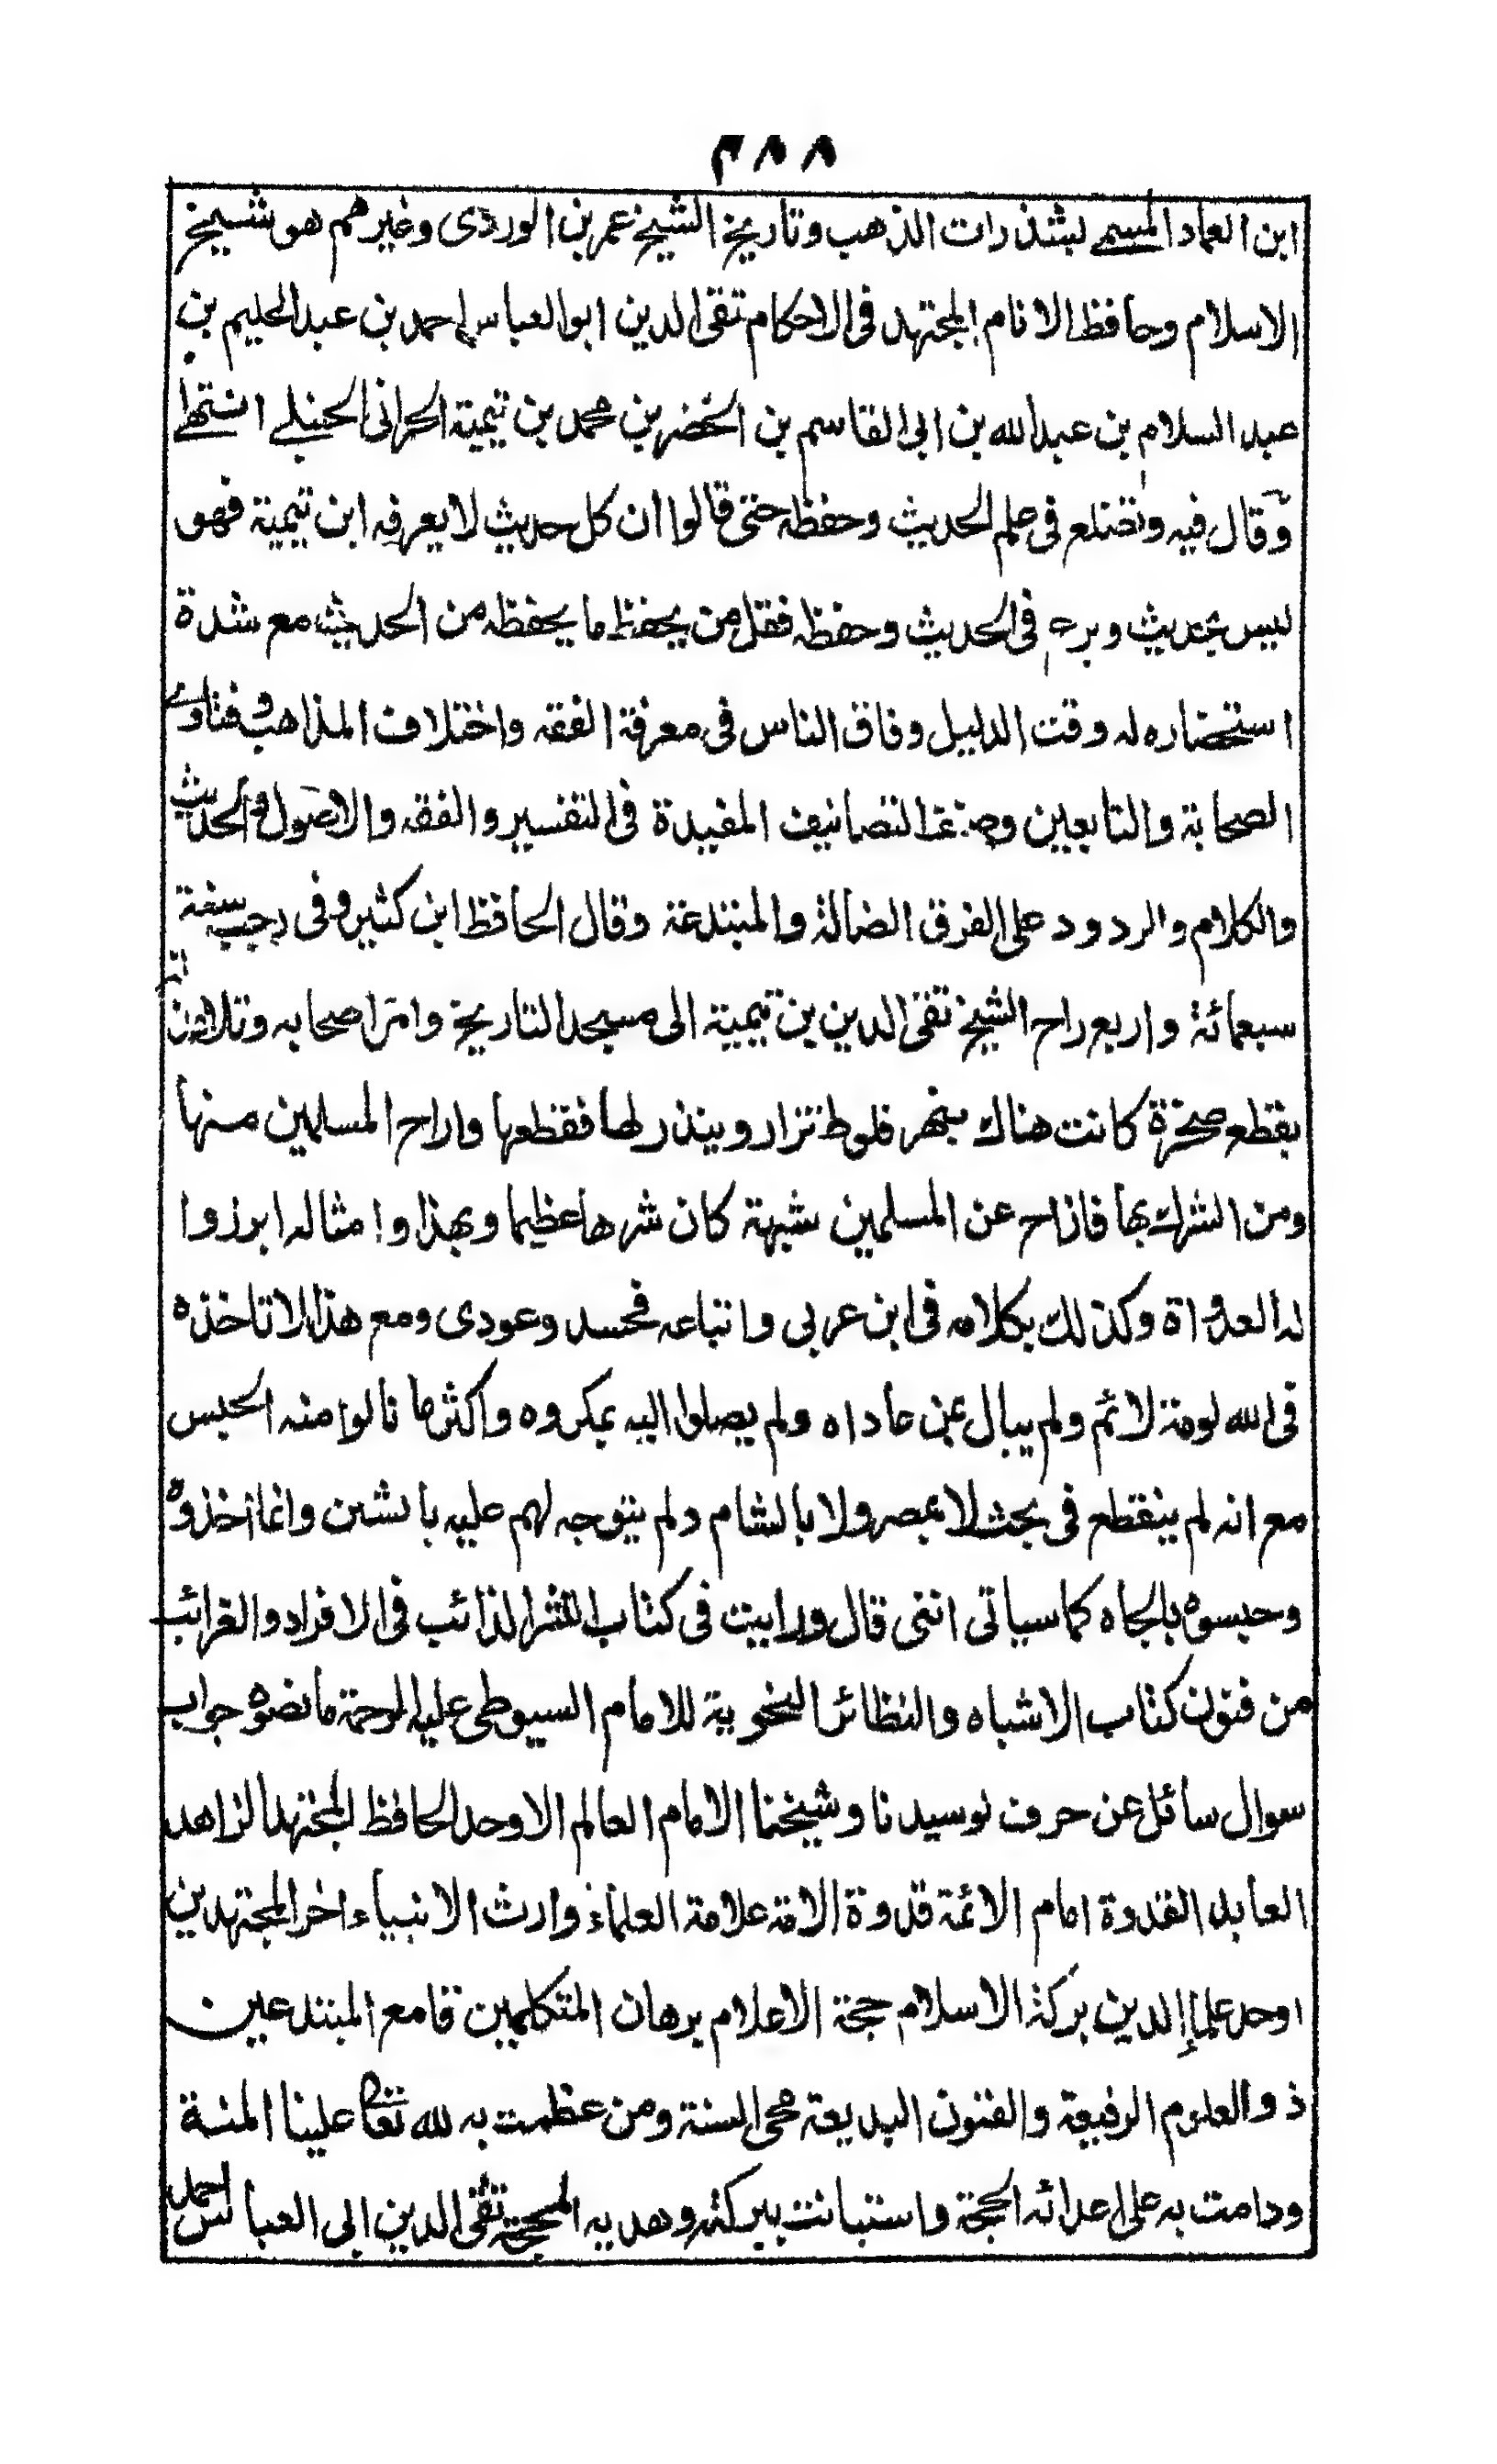 ٣٨٨
ابن العماد المسمى بشذرات الذهب وتاريخ الشيخ عمر بن الوردى وغيرهم هو شيخ
الاسلام وحافظ الانام المجتهد فى الاحكام تقى الدين ابو العباس احمد بن عبد الحليم بن
عبد السلام بن عبد الله بن ابى القاسم بن الخضر بن محمد بن تيمية الحرانى الحنبلے انتهے
وقال فيه وتضلع فى علم الحديث وحفظه حتى قالوا ان كل حديث لا يعرفه ابن تيمية فهو
ليس بحديث وبرع فى الحديث وحفظه فقل من يحفظ ما يحفظه من الحديث مع شدة
استحضاره له وقت الدليل وفاق الناس فى معرفة الفقه واختلاف المذاهب وفتاوے
الصحابة والتابعين وصنف التصانيف المفيدة فى التفسير والفقه والاصول والحديث
والكلام والردود على الفرق الضالة والمبتدعة وقال الحافظ ابن كثير وفى رجب سنة
سبعمائة واربع راح الشيخ تقى الدين بن تيمية الى مسجد التاريخ وامر اصحابه وتلامذته
بقطع صخرة كانت هناك بنهر قلوط تزار وينذر لها فقطعها واراح المسلمين منها
ومن الشرك بها فازاح عن المسلمين شبهة كان شرها عظيما وبهذا وامثاله ابرزوا
له العداوة وكذلك بكلامه فى ابن عربى واتباعه فحسد وعودى ومع هذا لا تاخذه
فى الله لومة لائم ولم يبال بمن عاداه ولم يصلوا اليه بمكروه واكثر ما نالوا منه الحبس
مع انه لم ينقطع فى بحث لا بمصر ولا بالشام ولم يتوجه لهم عليه بالشين وانما اخذوه
وحبسوه بالجاه كما سياتى انتى قال ورايت فى كتاب التبر الذائب فى الافراد والغرائب
من فنون كتاب الاشباه والنظائر النحوية للامام السيوطى عليه الرحمة ما نصوه جواب
سوال سائل عن حرف لو سيدنا وشيخنا الامام العالم الاوحد الحافظ المجتهد الزاهد
العابد القدوة امام الائمة قدوة الامة علامة العلماء وارث الانبياء اخر المجتهدين
اوحد علماء الدين بركة الاسلام حجة الاعلام برهان المتكلمين قامع المبتدعين
ذو العلوم الرفيعة والفنون البديعة محى السنة ومن عظمت به لله تعالى علينا المنة
ودامت به على اعدائه الحجة واستبانت ببركته وهديه المحجة تقى الدين ابى العباس احمد